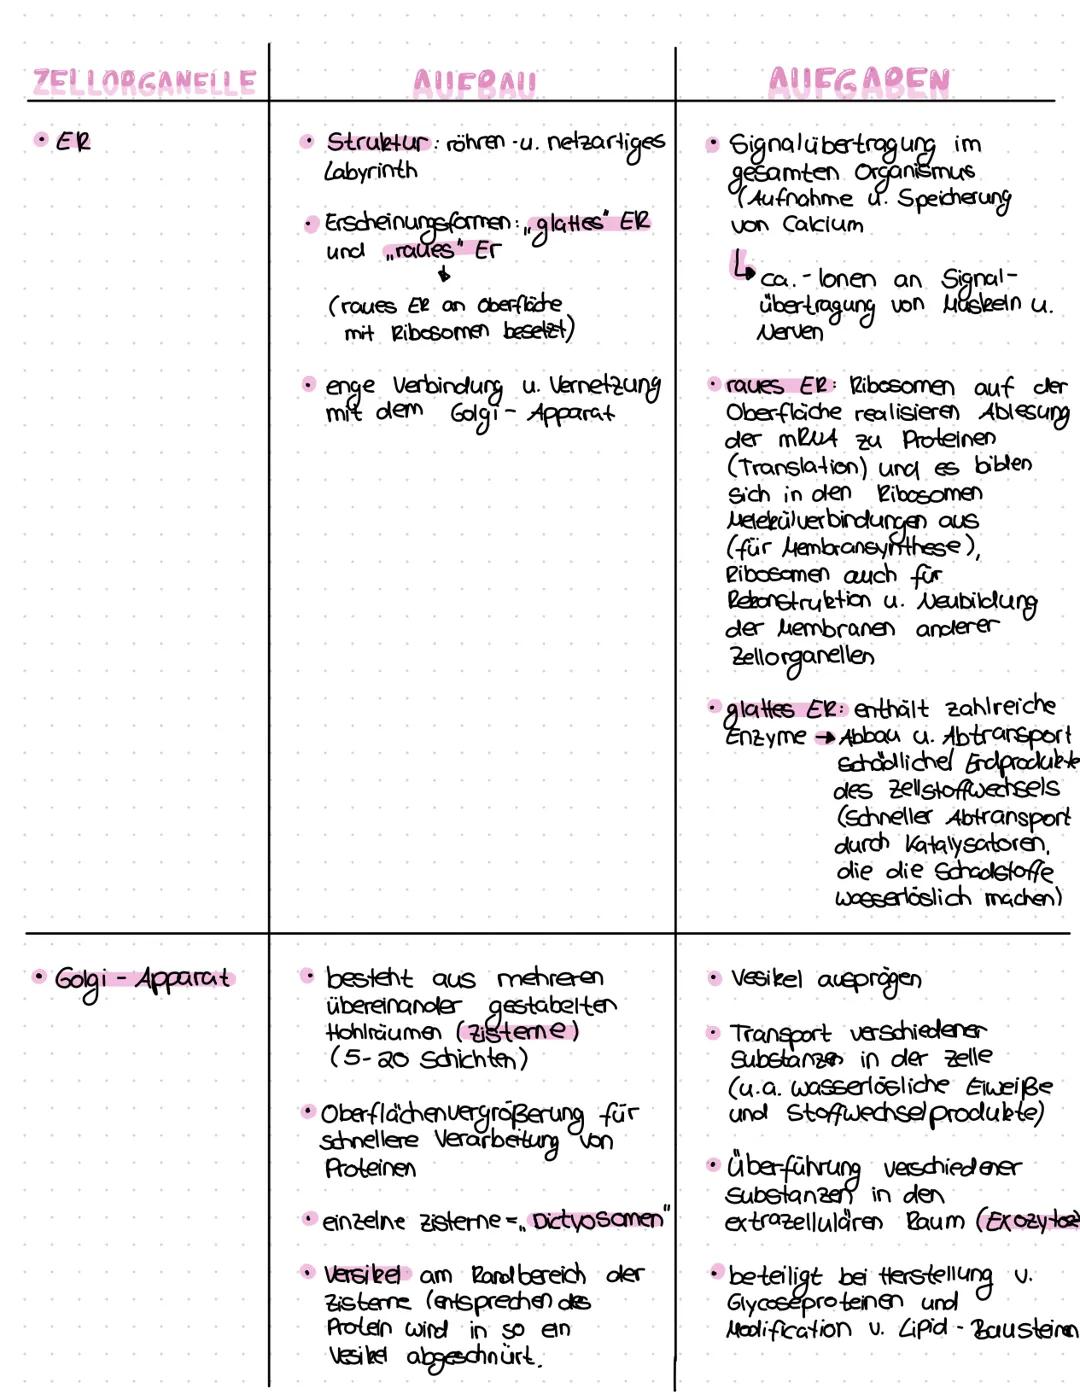 ZELLORGANELLE
AUFBAU
AUFGABEN
• ER
• Struktur: röhren -u. netzartiges
Labyrinth
• Erscheinungsformen: „glattes" ER
und „raues" Er
(raues ER an Oberfläche
mit Ribosomen besetzt)
• enge Verbindung u. Vernetzung
mit dem Golgi - Apparat
• Signalübertragung im
gesamten Organismus
(Aufnahme u. Speicherung
von Calcium
↳ ca. - Ionen an Signal-
übertragung von Muskeln u.
Nerven
• raues ER: Ribosomen auf der
Oberfläche realisieren Ablesung
der mRNA zu Proteinen
(Translation) und es bilden
sich in den Ribosomen
Molekülverbindungen aus
(für Membransynthese),
Ribosomen auch für
Rekonstruktion u. Neubildung
der Membranen anderer
Zellorganellen
• glattes ER: enthält zahlreiche
Enzyme → Abbau u. Abtransport
schädlicher Endprodukte
des Zellstoffwechsels
(schneller Abtransport
durch Katalysatoren,
die die Schadstoffe
wasserlöslich machen)
• Golgi - Apparat
• besteht aus mehreren
übereinander gestabelten
Hohlräumen (Zisterne)
(5-20 Schichten)
• Oberflächenvergrößerung für
schnellere Verarbeitung von
Proteinen
• einzelne Zisterne = „Dictyosomen"
• Versikel am Randbereich der
Zisterne (entsprechendes
Protein wird in so ein
Vesikel abgeschnürt.
• Vesikel ausprägen
• Transport verschiedener
Substanzen in der Zelle
(u.a. wasserlösliche Eiweiße
und Stoffwechselprodukte)
• Überführung verschiedener
Substanzen in den
extrazellulären Raum (Exozytose)
• beteiligt bei Herstellung v.
Glycoseproteinen und
Modification v. Lipid - Bausteinen